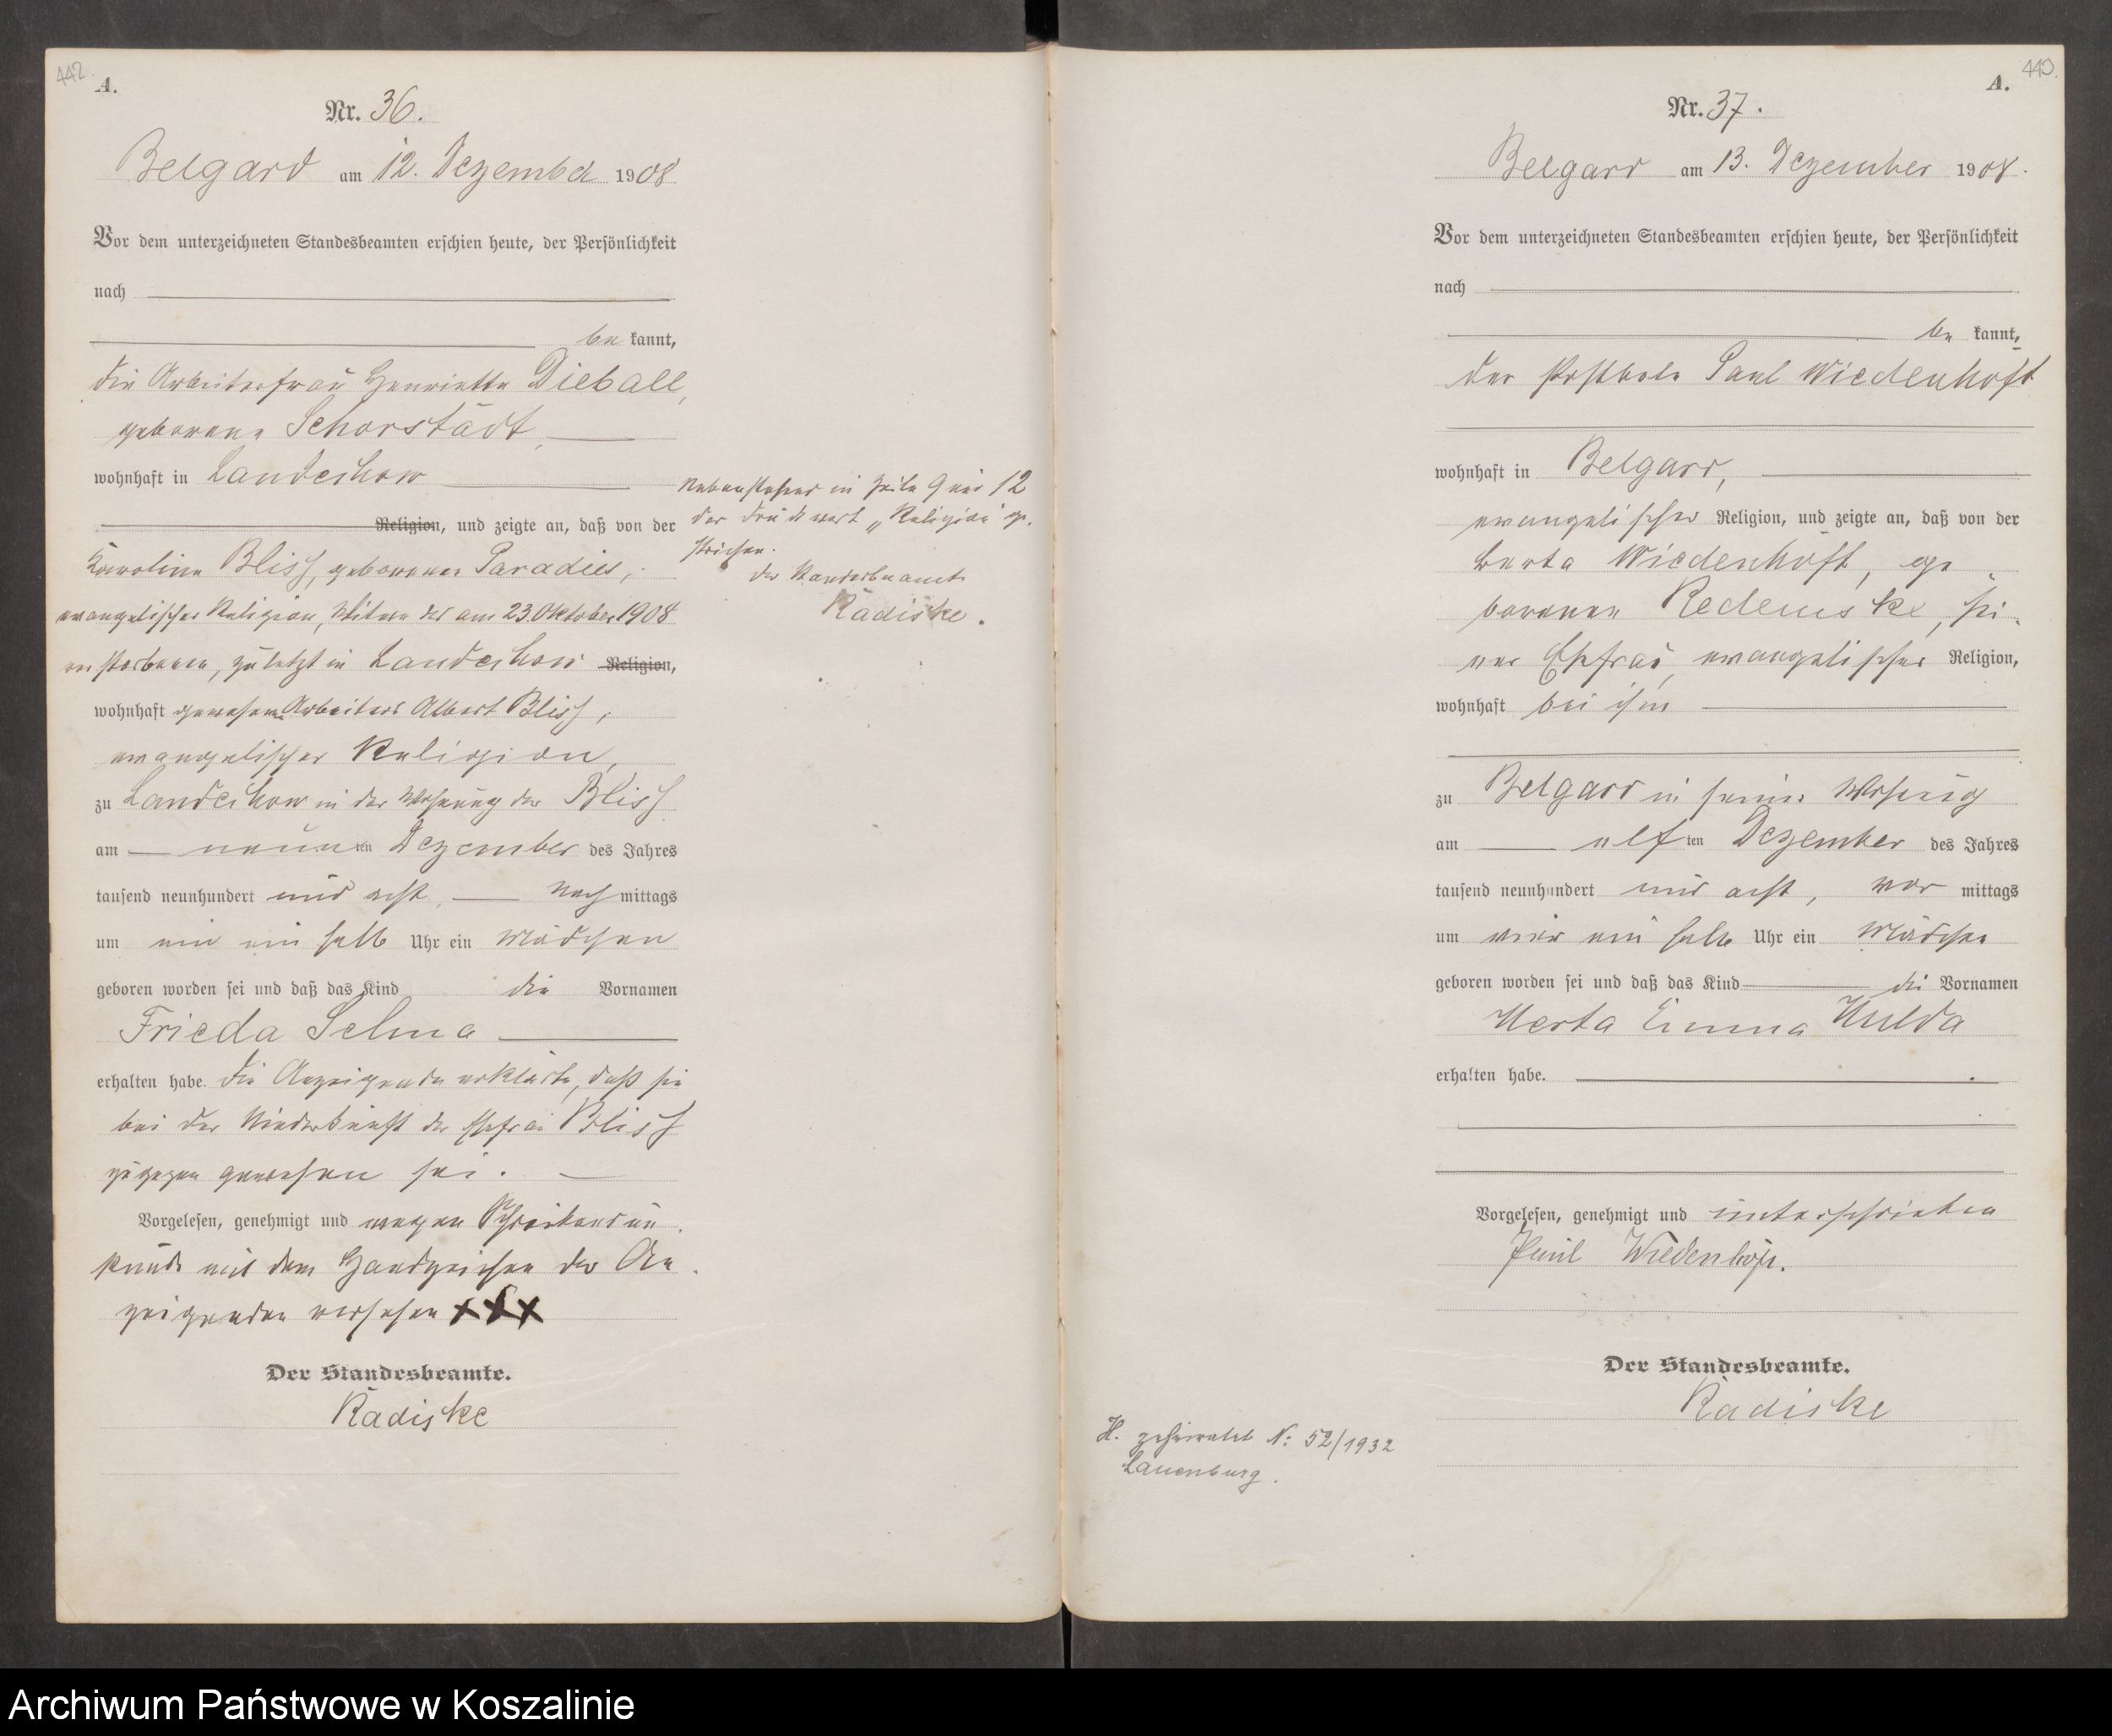 442.
A.
Nr. 36.
Belgard am 12. Dezember 1908
Vor dem unterzeichneten Standesbeamten erschien heute, der Persönlichkeit
nach
be kannt,
die Arbeiterfrau Henriette Dieball,
geborene Schorstädt,
wohnhaft in Landechow
Religion, und zeigte an, daß von der
Karoline Bliss, geborenen Paradies,
evangelischer Religion, Witwe des am 23. Oktober 1908
verstorbenen, zuletzt in Landechow Religion,
wohnhaft gewesenen Arbeiters Albert Bliss,
evangelischer Religion,
zu Landechow in der Wohnung der Bliss
am neunten Dezember des Jahres
tausend neunhundert und acht, Nach mittags
um ein ein halb Uhr ein Mädchen
geboren worden sei und daß das Kind die Vornamen
Frieda Selma
erhalten habe. Die Anzeigende erklärte, daß sie
bei der Niederkunft der Ehefrau Bliss
zugegen gewesen sei.
Vorgelesen, genehmigt und wegen Schreibensun
kunde mit dem Handzeichen der An
zeigenden versehen XXX
Der Standesbeamte.
Radiske
Nebenstehend in Zeile 9 und 12
der Druckwort „Religion" ge
strichen.
Der Standesbeamte
Radiske.
440.
A.
Nr. 37.
Belgard am 13. Dezember 1908.
Vor dem unterzeichneten Standesbeamten erschien heute, der Persönlichkeit
nach
be kannt,
der Postbote Paul Wiedenhöft
wohnhaft in Belgard,
evangelischer Religion, und zeigte an, daß von der
Berta Wiedenhöft, ge
borenen Redemske, sei
ner Ehefrau, evangelischer Religion,
wohnhaft bei ihm
zu Belgard in seiner Wohnung
am elf ten Dezember des Jahres
tausend neunhundert und acht, vor mittags
um vier ein halb Uhr ein Mädchen
geboren worden sei und daß das Kind die Vornamen
Herta Emma Hulda
erhalten habe.
Vorgelesen, genehmigt und unterschrieben
Paul Wiedenhöft.
Der Standesbeamte.
Radiske
H. geheiratet N: 52/1932
Lauenburg.
Archiwum Państwowe w Koszalinie